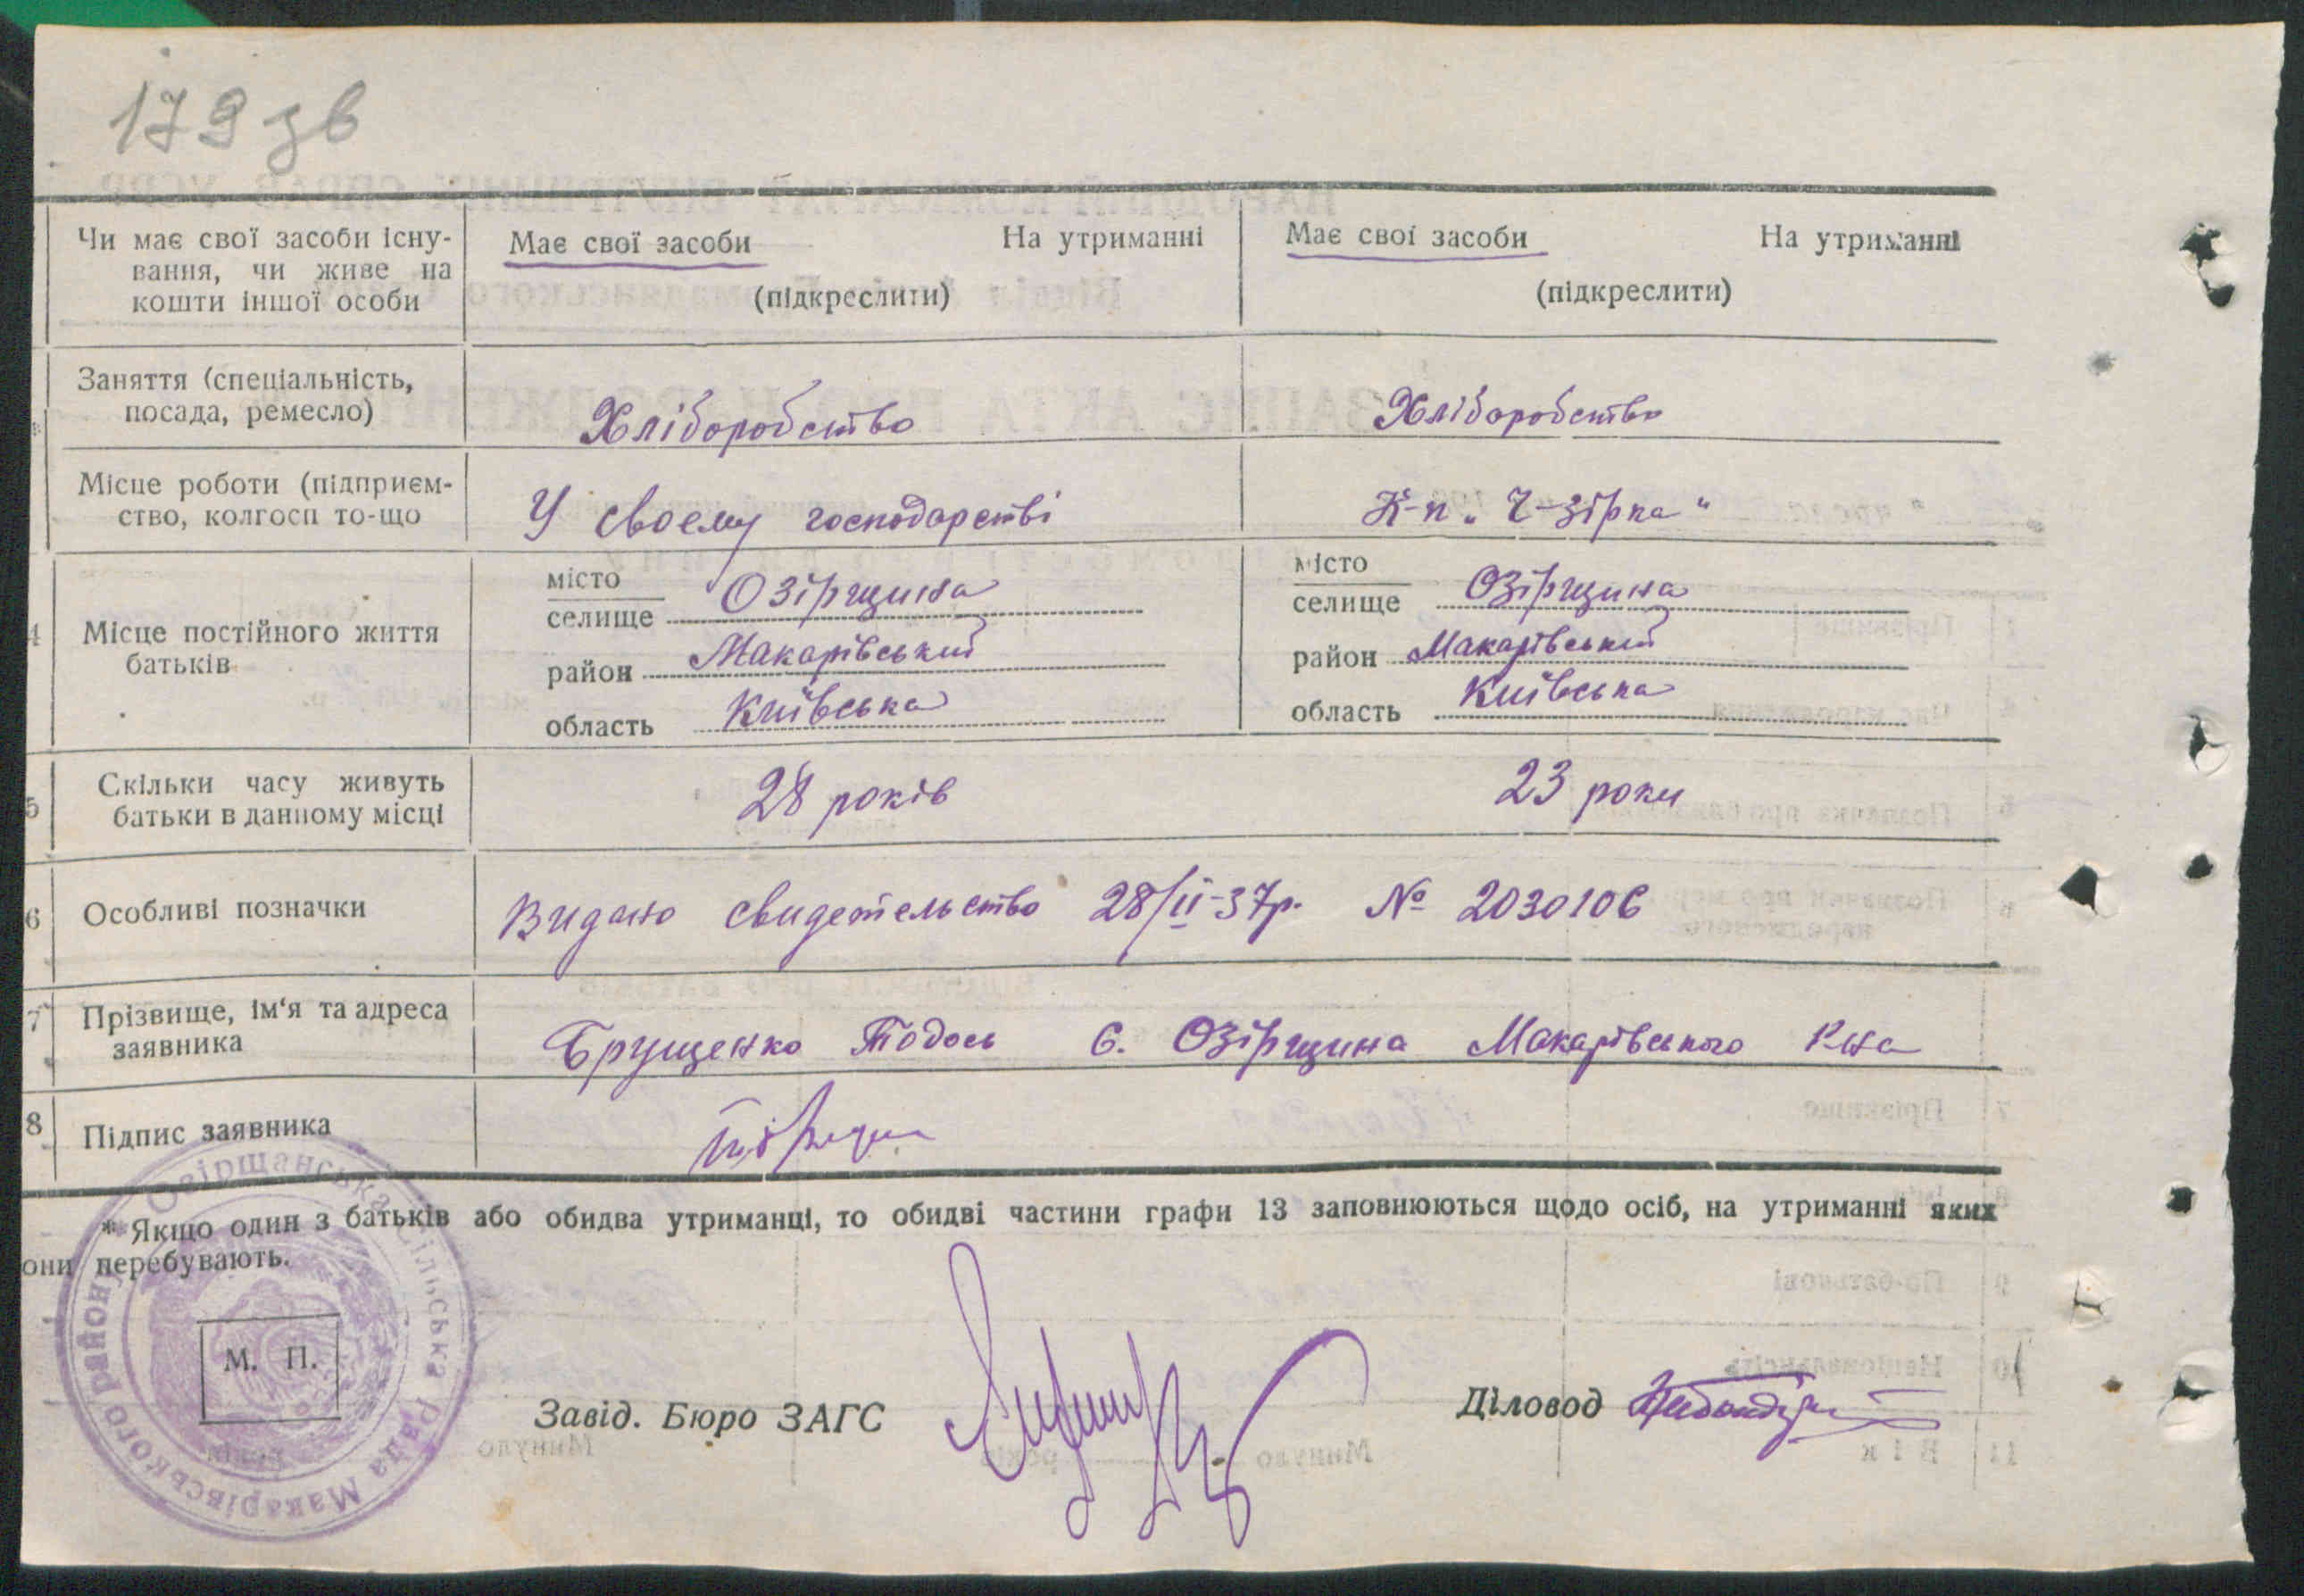 179 зв
Чи має свої засоби існу-
вання, чи живе на
кошти іншої особи
Має свої засоби На утриманні
(підкреслити)
Має свої засоби На утриманні
(підкреслити)
Заняття (спеціальність,
посада, ремесло)
Хліборобство
Хліборобство
Місце роботи (підприєм-
ство, колгосп то-що
У своему господарстві
К-п „Ч-зірка"
4 Місце постійного життя
батьків
місто
селище Озірщина
район Макарівський
область Київська
місто
селище Озірщина
район Макарівський
область Київська
5 Скільки часу живуть
батьки в данному місці
28 років
23 роки
6 Особливі позначки
Видано свидетельство 28/II-37р. № 2030106
7 Прізвище, ім'я та адреса
заявника
Брущенко Тодось с. Озірщина Макарівського Р-на
8 Підпис заявника
* Якщо один з батьків або обидва утриманці, то обидві частини графи 13 заповнюються щодо осіб, на утриманні яких
они перебувають.
Озірщанська сільська рада Макарівського району
М. П.
Завід. Бюро ЗАГС
Діловод